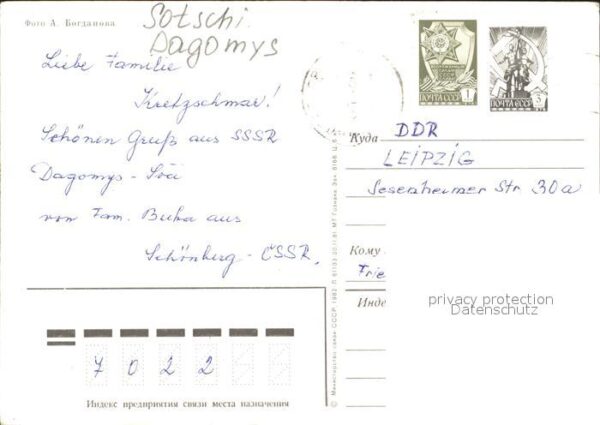 Фото А. Богданова
Sotschi
Dagomys
Liebe Familie
Kretzschmar!
Schönen Gruß aus SSSR
Dagomys - Soči
von Fam. Buka aus
Schönberg - ČSSR.
ПОЧТА СССР 1
ПОЧТА СССР 3
Куда DDR
LEIPZIG
Sesenheimer Str. 30a
Кому
Frie
Инде
privacy protection
Datenschutz
7022
Индекс предприятия связи места назначения
© Министерство связи СССР. 1982